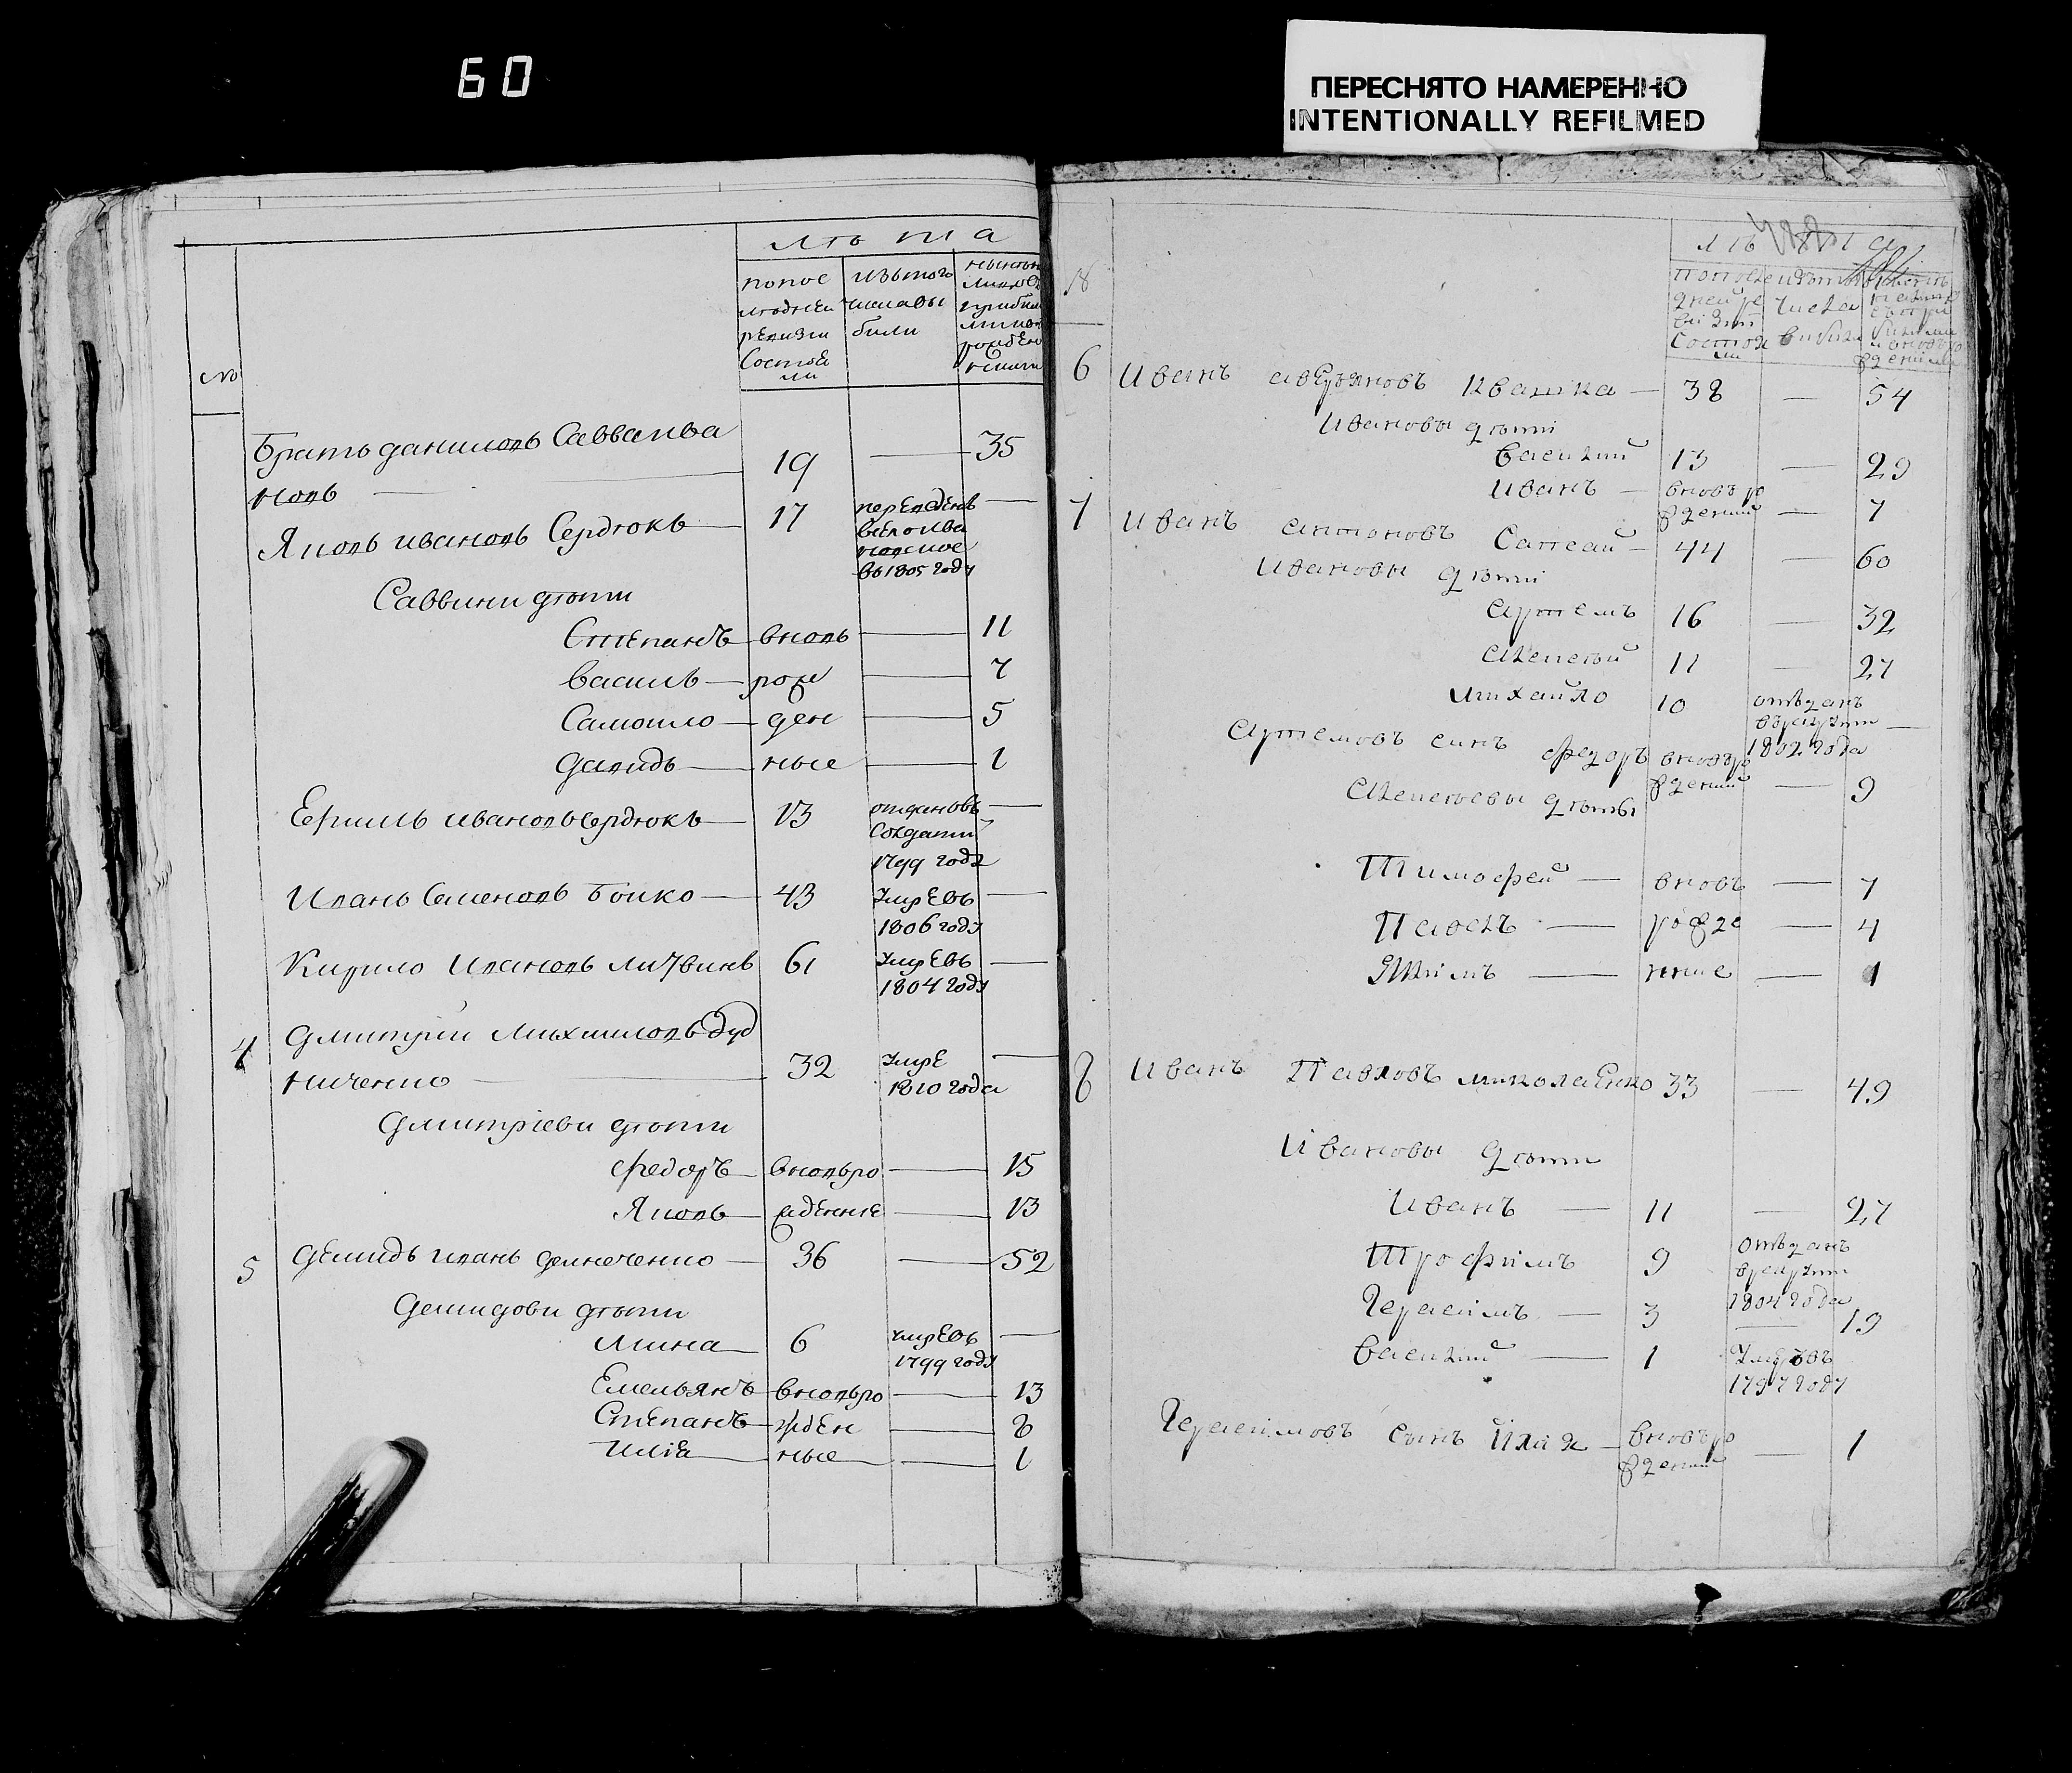 60
ПЕРЕСНЯТО НАМЕРЕННО
INTENTIONALLY REFILMED
лѣта
№
попос
лѣдней
ревизи
состоя
ли
изътого
числавы
были
Братъ даниловъ Саввы ива
новъ — 19 — 35
Яковъ ивановъ Сердюкъ — 17 переведенъ —
въ 1805 году
Саввини дѣти
Степанъ — вновь — 11
василь — рож — 7
Самоило — ден — 5
давидъ — ные — 1
Ермилъ ивановъ Сердюкъ — 13 отдановъ —
Солдати
1799 года
Иванъ Семеновъ Боико — 43 умревъ —
1806 году
Кирило Ивановъ литвинъ 61 умревъ —
1804 году
4 Дмитрий Михаиловъ дуд
ниченко — 32 умре —
1810 года
Дмитріеви дѣти
федоръ — вновъро — 15
Яковъ — жденніе — 13
5 Демидъ иванъ демченко — 36 — 52
Демидови дѣти
мина — 6 умревъ —
1799 году
Емельянъ — вновъро — 13
Степанъ — жден — 8
Илія — ные — 1
лѣта
попосле
дней ре
визіи
Состоя
ли
изътого
числа
выбыли
6 Иванъ аверьяновъ Квашка — 38 — 54
Ивановы дѣти
василий 13 — 29
Иванъ — вновъ ро
жденый — 7
7 Иванъ антоновъ Сапсай — 44 — 60
Ивановы дѣти
артемъ 16 — 32
алексѣй 11 — 27
михайло 10 отъданъ
врекрути —
1802 года
артемовъ синъ федоръ вновъро
жденый — 9
алексеевы дѣты
Тимофей — вновъ — 7
Павелъ — рожде — 4
Якимъ — нние — 1
8 Иванъ Павловъ миколаенко 33 — 49
Ивановы дѣти
Иванъ — 11 — 27
Трофимъ 9 отъданъ
врекрути
1804 года
Герасимъ — 3 — 19
василий — 1 Умеръвъ
1797 году
Герасимовъ сынъ Илія — вновъро
жденый — 1